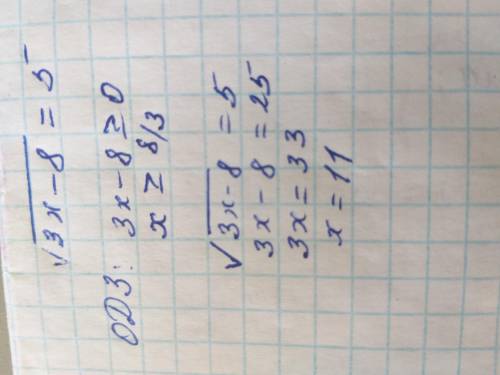 √3x-8 = 5
ОДЗ: 3x-8 ≥ 0
x ≥ 8/3
√3x-8 = 5
3x-8 = 25
3x = 33
x = 11